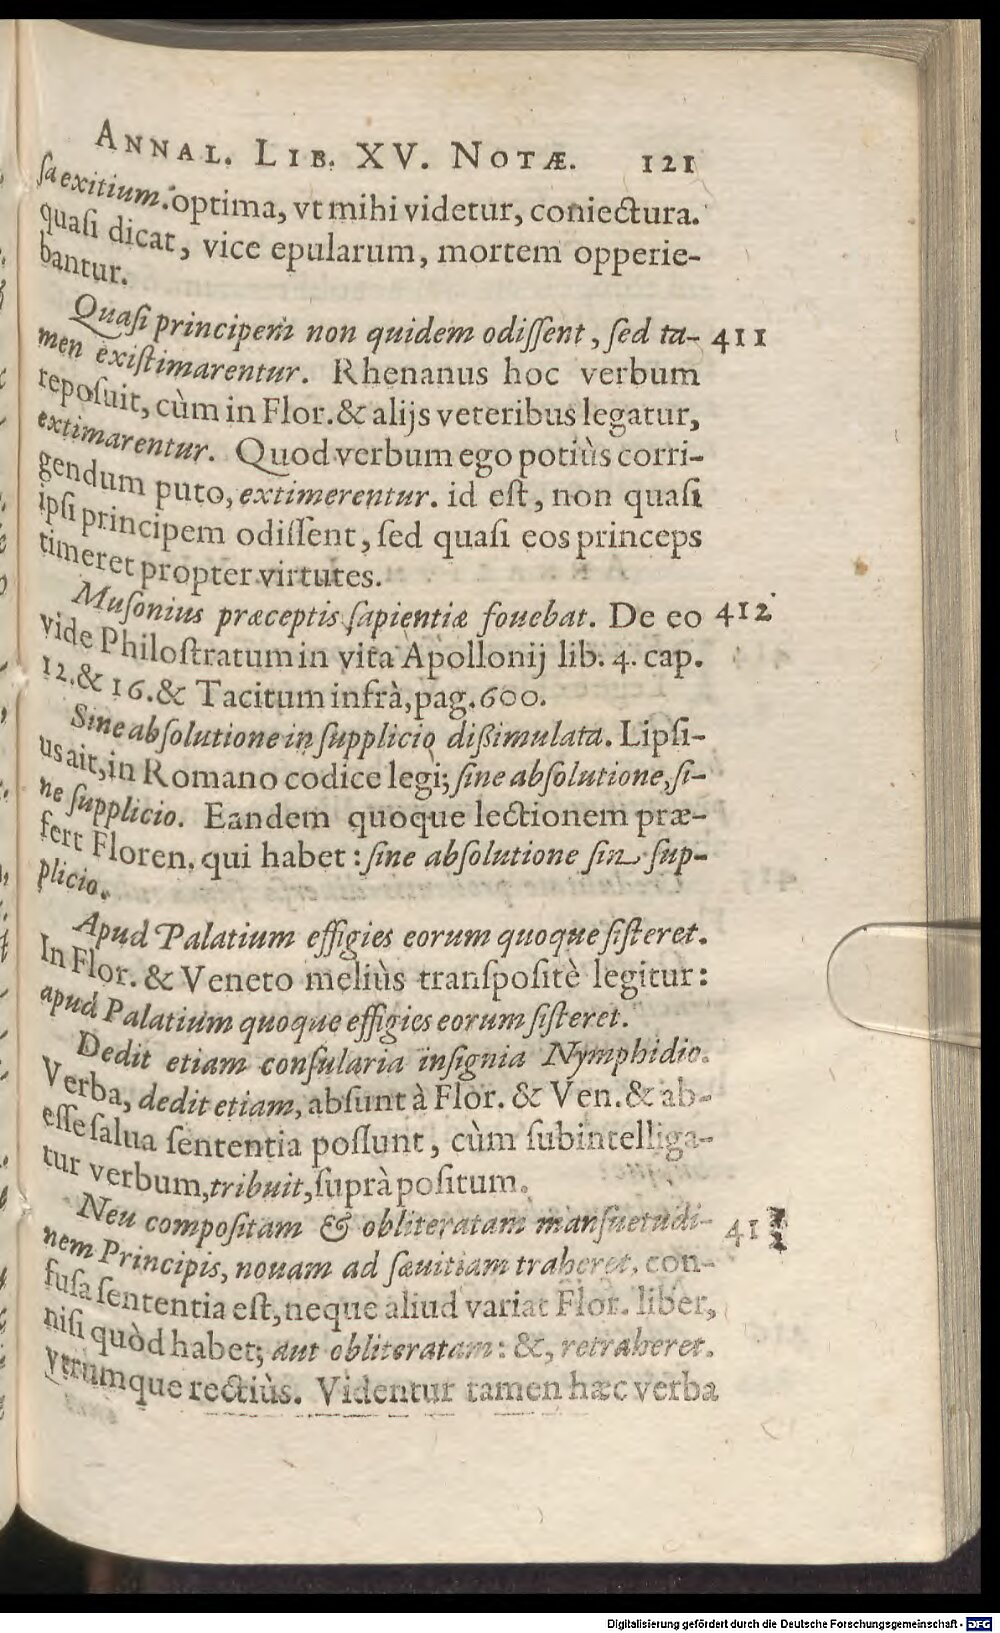 ANNAL. LIB. XV. NOTÆ. 121
ſa exitium. optima, vt mihi videtur, coniectura.
quaſi dicat, vice epularum, mortem opperie-
bantur.
Quaſi principem non quidem odiſſent, ſed ta- 411
men exiſtimarentur. Rhenanus hoc verbum
repoſuit, cùm in Flor. & alijs veteribus legatur,
extimarentur. Quod verbum ego potiùs corri-
gendum puto, extimerentur. id eſt, non quaſi
ipſi principem odiſſent, ſed quaſi eos princeps
timeret propter virtutes.
Muſonius præceptis ſapientiæ fouebat. De eo 412
vide Philoſtratum in vita Apollonij lib. 4. cap.
12. & 16. & Tacitum infrà, pag. 600.
Sine abſolutione in ſupplicio dißimulata. Lipſi-
us ait, in Romano codice legi; ſine abſolutione, ſi-
ne ſupplicio. Eandem quoque lectionem præ-
fert Floren. qui habet: ſine abſolutione ſin ſup-
plicio.
Apud Palatium effigies eorum quoque ſiſteret.
In Flor. & Veneto meliùs tranſpoſitè legitur:
apud Palatium quoque effigies eorum ſiſteret.
Dedit etiam conſularia inſignia Nymphidio.
Verba, dedit etiam, abſunt à Flor. & Ven. & ab-
eſſe ſalua ſententia poſſunt, cùm ſubintelliga-
tur verbum, tribuit, ſuprà poſitum.
Neu compoſitam & obliteratam manſuetudi- 41
nem Principis, nouam ad ſæuitiam traheret. con-
fuſa ſententia eſt, neque aliud variat Flor. liber,
niſi quòd habet; aut obliteratam: &, retraheret.
Vtrumque rectiùs. Videntur tamen hæc verba
Digitalisierung gefördert durch die Deutsche Forschungsgemeinschaft - DFG